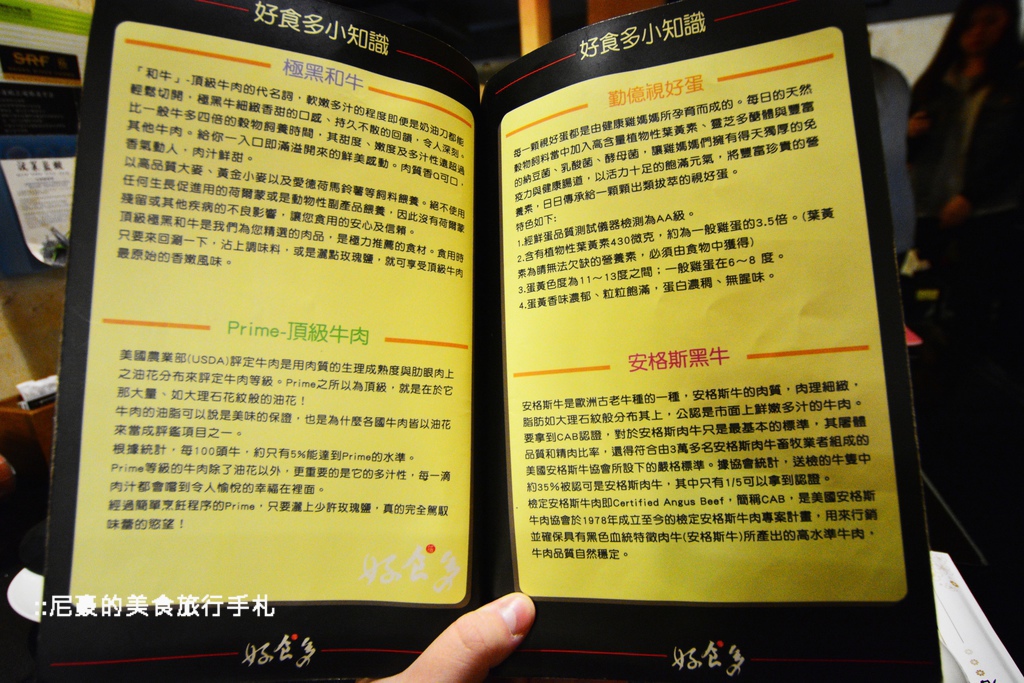 SRF
好食多小知識
極黑和牛
「和牛」-頂級牛肉的代名詞，軟嫩多汁的程度即便是奶油刀都能
輕鬆切開，極黑牛細緻香甜的口感、持久不散的回韻，令人深刻。
比一般牛多四倍的穀物飼養時間，其甜度、嫩度及多汁性遠超過
其他牛肉。給你一入口即滿溢開來的鮮美感動。肉質香Q可口，
香氣動人，肉汁鮮甜。
以高品質大麥、黃金小麥以及愛德荷馬鈴薯等飼料餵養。絕不使用
任何生長促進用的荷爾蒙或是動物性副產品餵養，因此沒有荷爾蒙
殘留或其他疾病的不良影響，讓您食用的安心及信賴。
頂級極黑和牛是我們為您精選的肉品，是極力推薦的食材。食用時
只要來回涮一下，沾上調味料，或是灑點玫瑰鹽，就可享受頂級牛肉
最原始的香嫩風味。
Prime-頂級牛肉
美國農業部(USDA)評定牛肉是用肉質的生理成熟度與肋眼肉上
之油花分布來評定牛肉等級。Prime之所以為頂級，就是在於它
那大量、如大理石花紋般的油花！
牛肉的油脂可以說是美味的保證，也是為什麼各國牛肉皆以油花
來當成評鑑項目之一。
根據統計，每100頭牛，約只有5%能達到Prime的水準。
Prime等級的牛肉除了油花以外，更重要的是它的多汁性，每一滴
肉汁都會嚐到令人愉悅的幸福在裡面。
經過簡單烹飪程序的Prime，只要灑上少許玫瑰鹽，真的完全駕馭
味蕾的慾望！
好食多
::尼豪的美食旅行手札
好食多
好食多小知識
勤億視好蛋
每一顆視好蛋都是由健康雞媽媽所孕育而成的。每日的天然
穀物飼料當中加入高含量植物性葉黃素、靈芝多醣體與豐富
的納豆菌、乳酸菌、酵母菌，讓雞媽媽們擁有得天獨厚的免
疫力與健康腸道，以活力十足的飽滿元氣，將豐富珍貴的營
養素，日日傳承給一顆顆出類拔萃的視好蛋。
特色如下:
1.經鮮蛋品質測試儀器檢測為AA級。
2.含有植物性葉黃素430微克，約為一般雞蛋的3.5倍。(葉黃
素為睛無法欠缺的營養素，必須由食物中獲得)
3.蛋黃色度為11～13度之間；一般雞蛋在6～8 度。
4.蛋黃香味濃郁、粒粒飽滿，蛋白濃稠、無腥味。
安格斯黑牛
安格斯牛是歐洲古老牛種的一種，安格斯牛的肉質，肉理細緻，
脂肪如大理石紋般分布其上，公認是市面上鮮嫩多汁的牛肉。
要拿到CAB認證，對於安格斯肉牛只是最基本的標準，其屠體
品質和精肉比率，還得符合由3萬多名安格斯肉牛畜牧業者組成的
美國安格斯牛協會所設下的嚴格標準。據協會統計，送檢的牛隻中
約35%被認可是安格斯肉牛，其中只有1/5可以拿到認證。
檢定安格斯牛肉即Certified Angus Beef，簡稱CAB，是美國安格斯
牛肉協會於1978年成立至今的檢定安格斯牛肉專案計畫，用來行銷
並確保具有黑色血統特徵肉牛(安格斯牛)所產出的高水準牛肉，
牛肉品質自然穩定。
好食多